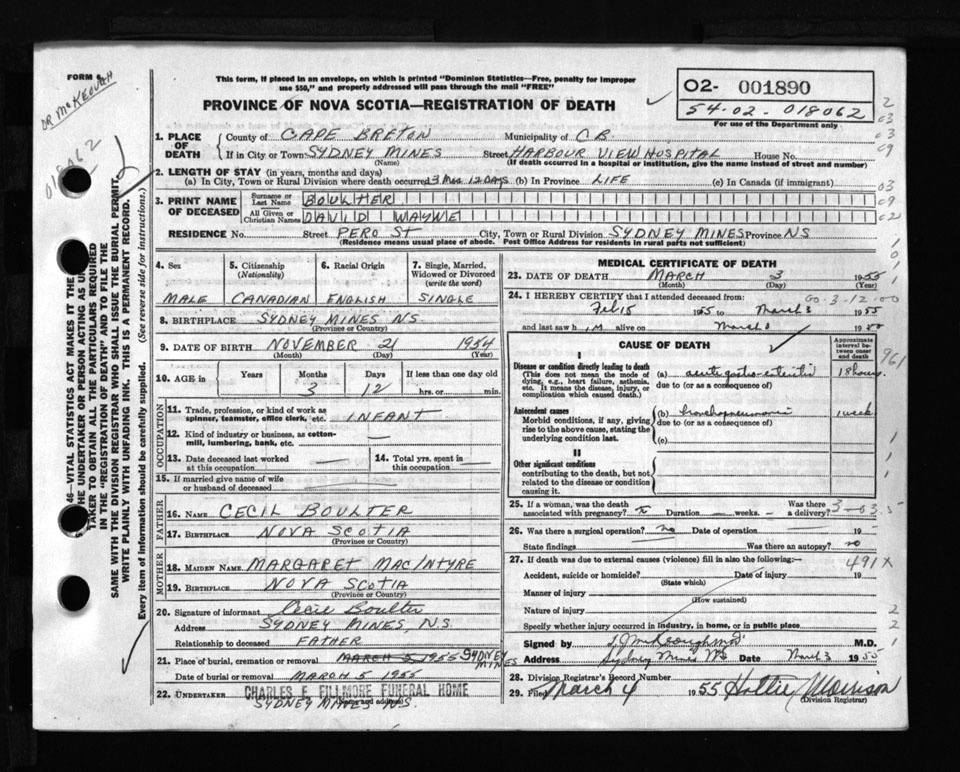 FORM 6
DR McKEOUGH
This form, if placed in an envelope, on which is printed "Dominion Statistics—Free, penalty for improper
use $50," and properly addressed will pass through the mail "FREE"
PROVINCE OF NOVA SCOTIA—REGISTRATION OF DEATH
O2- 001890
54-02-018062
For use of the Department only
1. PLACE OF DEATH County of CAPE BRETON Municipality of C.B.
If in City or Town SYDNEY MINES (Name) Street HARBOUR VIEW HOSPITAL House No.
(If death occurred in a hospital or institution, give the name instead of street and number)
2. LENGTH OF STAY (in years, months and days)
(a) In City, Town or Rural Division where death occurred 3 Mos 12 DAYS (b) In Province LIFE (c) In Canada (if immigrant)
3. PRINT NAME OF DECEASED Surname or Last Name BOULTER
All Given or Christian Names DAVID WAYNE
RESIDENCE No. Street PERO ST City, Town or Rural Division SYDNEY MINES Province NS
(Residence means usual place of abode. Post Office Address for residents in rural parts not sufficient)
4. Sex MALE
5. Citizenship (Nationality) CANADIAN
6. Racial Origin ENGLISH
7. Single, Married, Widowed or Divorced (write the word) SINGLE
8. BIRTHPLACE SYDNEY MINES N.S.
(Province or Country)
9. DATE OF BIRTH NOVEMBER 21 1954
(Month) (Day) (Year)
10. AGE in Years Months 3 Days 12 If less than one day old hrs. or min.
OCCUPATION
11. Trade, profession, or kind of work as spinner, teamster, office clerk, etc. INFANT
12. Kind of industry or business, as cotton-mill, lumbering, bank, etc.
13. Date deceased last worked at this occupation
14. Total yrs. spent in this occupation
15. If married give name of wife or husband of deceased
FATHER
16. NAME CECIL BOULTER
17. BIRTHPLACE NOVA SCOTIA
(Province or Country)
MOTHER
18. MAIDEN NAME MARGARET MACINTYRE
19. BIRTHPLACE NOVA SCOTIA
(Province or Country)
20. Signature of informant Cecil Boulter
Address SYDNEY MINES, N.S.
Relationship to deceased FATHER
21. Place of burial, cremation or removal MARCH 5 1955 SYDNEY MINES
Date of burial or removal MARCH 5 1955
22. UNDERTAKER CHARLES F. FILLMORE FUNERAL HOME
(Name and address)
SYDNEY MINES N.S.
MEDICAL CERTIFICATE OF DEATH
23. DATE OF DEATH MARCH 3 1955
(Month) (Day) (Year)
24. I HEREBY CERTIFY that I attended deceased from:
Feb 15 1955 to March 3 1955
and last saw h im alive on March 3 1955
CAUSE OF DEATH
Approximate interval between onset and death
I
Disease or condition directly leading to death
(This does not mean the mode of dying, e.g., heart failure, asthenia, etc. It means the disease, injury, or complication which caused death.)
(a) acute gastro-enteritis 18 hours
due to (or as a consequence of)
Antecedent causes
Morbid conditions, if any, giving rise to the above cause, stating the underlying condition last.
(b) bronchopneumonia 1 week
due to (or as a consequence of)
(c)
II
Other significant conditions
contributing to the death, but not related to the disease or condition causing it.
25. If a woman, was the death associated with pregnancy? Duration weeks. Was there a delivery?
26. Was there a surgical operation? no Date of operation 19
State findings Was there an autopsy? no
27. If death was due to external causes (violence) fill in also the following:—
491X
Accident, suicide or homicide? Date of injury 19
(State which)
Manner of injury
(How sustained)
Nature of injury
Specify whether injury occurred in Industry, in home, or in public place
Signed by M.D.
Address Sydney Mines NS Date March 3 1955
28. Division Registrar's Record Number
29. Filed March 4 1955 Hattie Morrison
(Division Registrar)
TAKER TO OBTAIN ALL THE PARTICULARS REQUIRED
IN THE "REGISTRATION OF DEATH" AND TO FILE THE
SAME WITH THE DIVISION REGISTRAR WHO SHALL ISSUE THE BURIAL PERMIT.
WRITE PLAINLY WITH UNFADING INK. THIS IS A PERMANENT RECORD.
Every item of information should be carefully supplied. (See reverse side for instructions.)